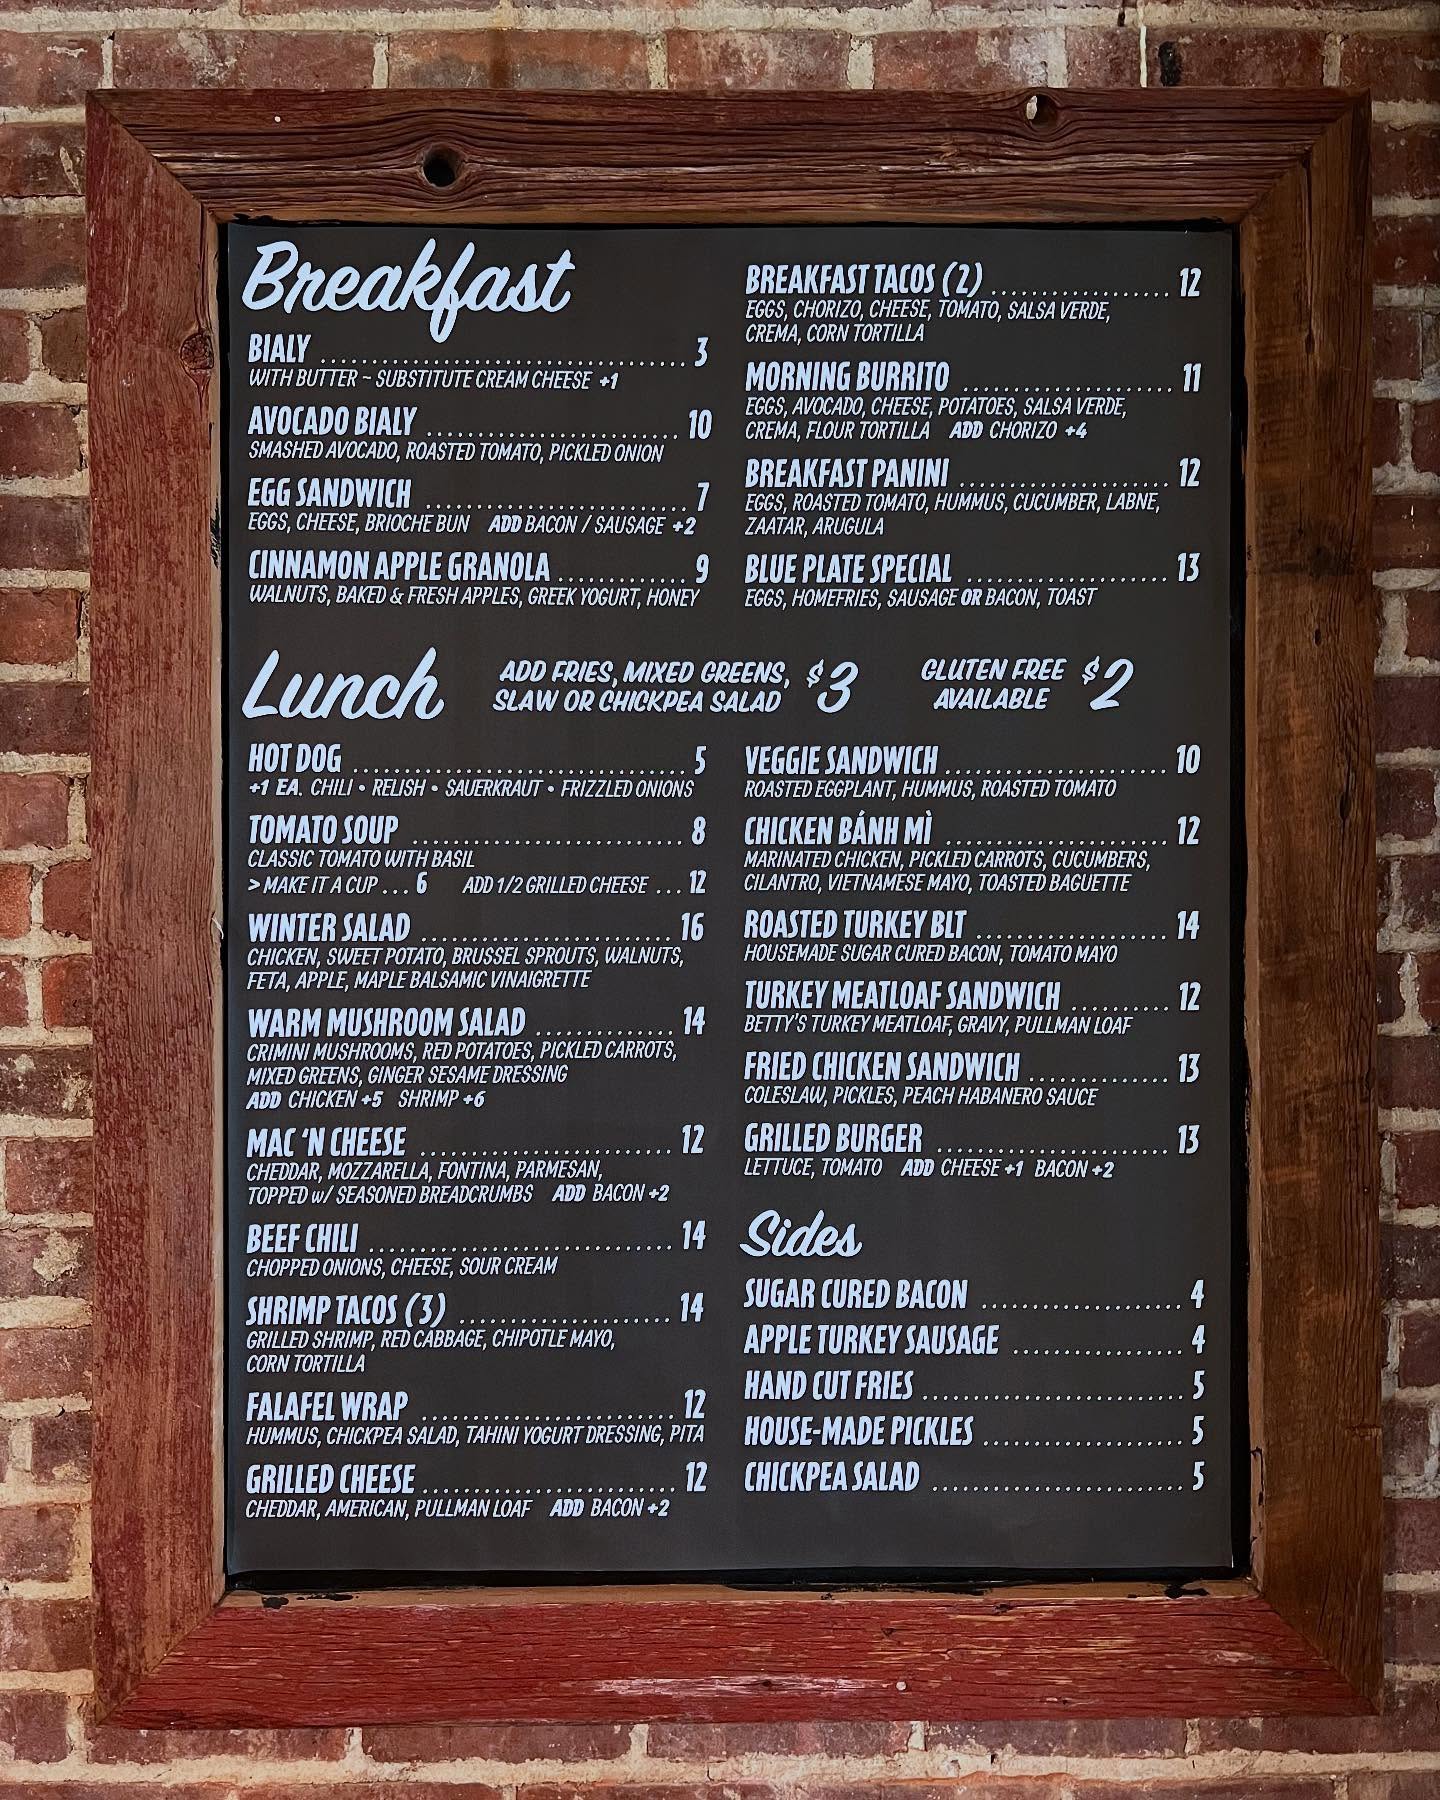 Breakfast
BIALY 3
WITH BUTTER ~ SUBSTITUTE CREAM CHEESE +1
AVOCADO BIALY 10
SMASHED AVOCADO, ROASTED TOMATO, PICKLED ONION
EGG SANDWICH 7
EGGS, CHEESE, BRIOCHE BUN ADD BACON / SAUSAGE +2
CINNAMON APPLE GRANOLA 9
WALNUTS, BAKED & FRESH APPLES, GREEK YOGURT, HONEY
BREAKFAST TACOS (2) 12
EGGS, CHORIZO, CHEESE, TOMATO, SALSA VERDE,
CREMA, CORN TORTILLA
MORNING BURRITO 11
EGGS, AVOCADO, CHEESE, POTATOES, SALSA VERDE,
CREMA, FLOUR TORTILLA ADD CHORIZO +4
BREAKFAST PANINI 12
EGGS, ROASTED TOMATO, HUMMUS, CUCUMBER, LABNE,
ZAATAR, ARUGULA
BLUE PLATE SPECIAL 13
EGGS, HOMEFRIES, SAUSAGE OR BACON, TOAST
Lunch
ADD FRIES, MIXED GREENS,
SLAW OR CHICKPEA SALAD $3
GLUTEN FREE
AVAILABLE $2
HOT DOG 5
+1 EA. CHILI • RELISH • SAUERKRAUT • FRIZZLED ONIONS
TOMATO SOUP 8
CLASSIC TOMATO WITH BASIL
> MAKE IT A CUP ... 6 ADD 1/2 GRILLED CHEESE ... 12
WINTER SALAD 16
CHICKEN, SWEET POTATO, BRUSSEL SPROUTS, WALNUTS,
FETA, APPLE, MAPLE BALSAMIC VINAIGRETTE
WARM MUSHROOM SALAD 14
CRIMINI MUSHROOMS, RED POTATOES, PICKLED CARROTS,
MIXED GREENS, GINGER SESAME DRESSING
ADD CHICKEN +5 SHRIMP +6
MAC 'N CHEESE 12
CHEDDAR, MOZZARELLA, FONTINA, PARMESAN,
TOPPED w/ SEASONED BREADCRUMBS ADD BACON +2
BEEF CHILI 14
CHOPPED ONIONS, CHEESE, SOUR CREAM
SHRIMP TACOS (3) 14
GRILLED SHRIMP, RED CABBAGE, CHIPOTLE MAYO,
CORN TORTILLA
FALAFEL WRAP 12
HUMMUS, CHICKPEA SALAD, TAHINI YOGURT DRESSING, PITA
GRILLED CHEESE 12
CHEDDAR, AMERICAN, PULLMAN LOAF ADD BACON +2
VEGGIE SANDWICH 10
ROASTED EGGPLANT, HUMMUS, ROASTED TOMATO
CHICKEN BÁNH MÌ 12
MARINATED CHICKEN, PICKLED CARROTS, CUCUMBERS,
CILANTRO, VIETNAMESE MAYO, TOASTED BAGUETTE
ROASTED TURKEY BLT 14
HOUSEMADE SUGAR CURED BACON, TOMATO MAYO
TURKEY MEATLOAF SANDWICH 12
BETTY'S TURKEY MEATLOAF, GRAVY, PULLMAN LOAF
FRIED CHICKEN SANDWICH 13
COLESLAW, PICKLES, PEACH HABANERO SAUCE
GRILLED BURGER 13
LETTUCE, TOMATO ADD CHEESE +1 BACON +2
Sides
SUGAR CURED BACON 4
APPLE TURKEY SAUSAGE 4
HAND CUT FRIES 5
HOUSE-MADE PICKLES 5
CHICKPEA SALAD 5